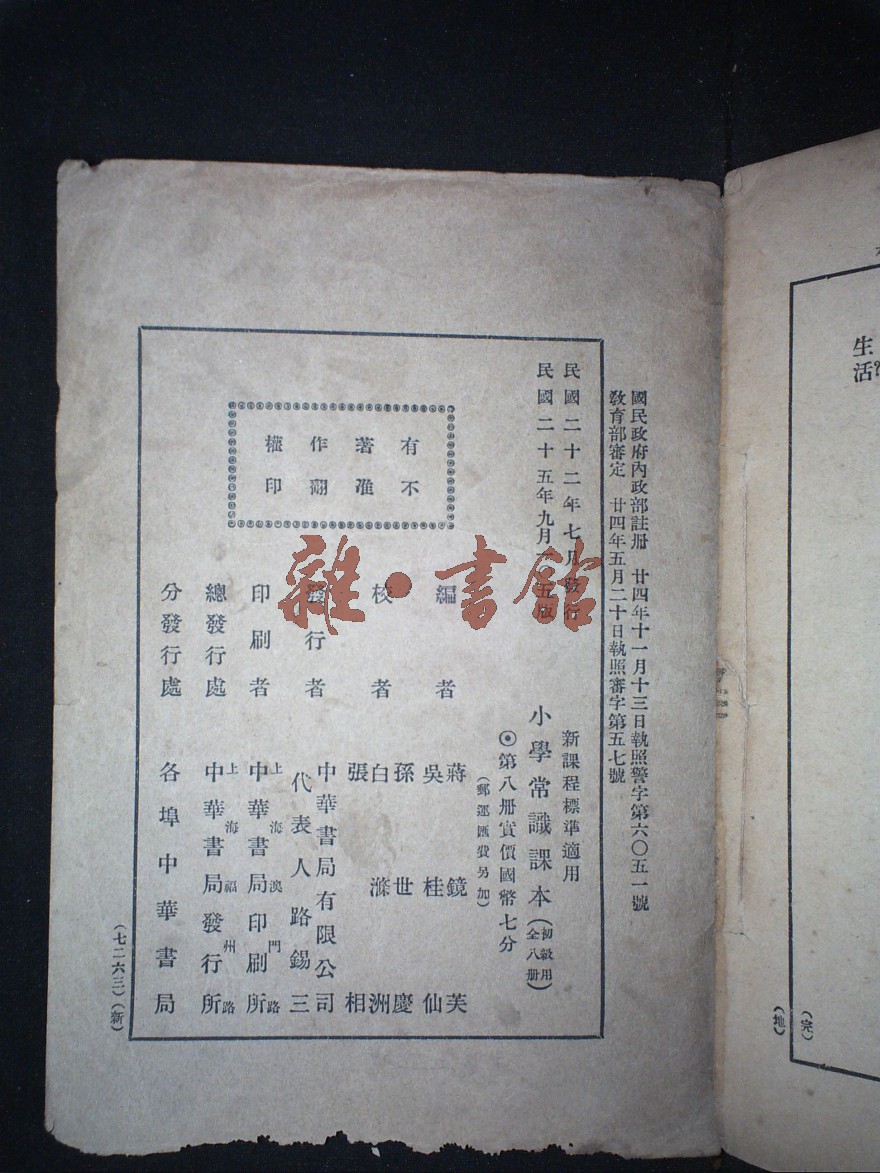 生
活？
（完）
（地）
國民政府內政部註冊　廿四年十一月十三日執照警字第六〇五一號
教育部審定　廿四年五月二十日執照審字第五七號
民國二十二年七月發行
民國二十五年九月一〇五版
新課程標準適用
小學常識課本（初級用全八冊）
⊙第八冊實價國幣七分
（郵運匯費另加）
有著作權
不准翻印
編者　蔣鏡芙
吳桂仙
校者　孫世慶
白滌洲
張相
發行者　中華書局有限公司
代表人路錫三
印刷者　上海澳門路
中華書局印刷所
總發行處　上海福州路
中華書局發行所
分發行處　各埠中華書局
（七二六三）（新）
雜·書館